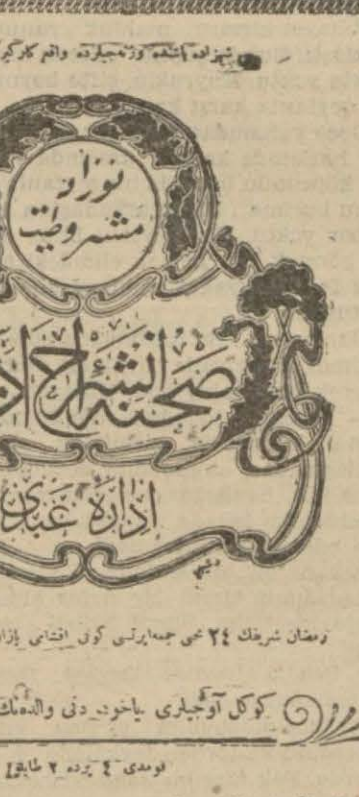 شهزاده باشنده وزنه‌جیلرده واقع كاركیر
نوزاد
مشروطیت
صحنه انشراح
اداره عبدی
رمضان شریفك ٢٤ نجی جمعه‌ایرتسی كونی اقشامی بازار
كوكل آوجیلری یاخود دنی والده‌نك
قومدی ٤ پرده ٢ طابلو